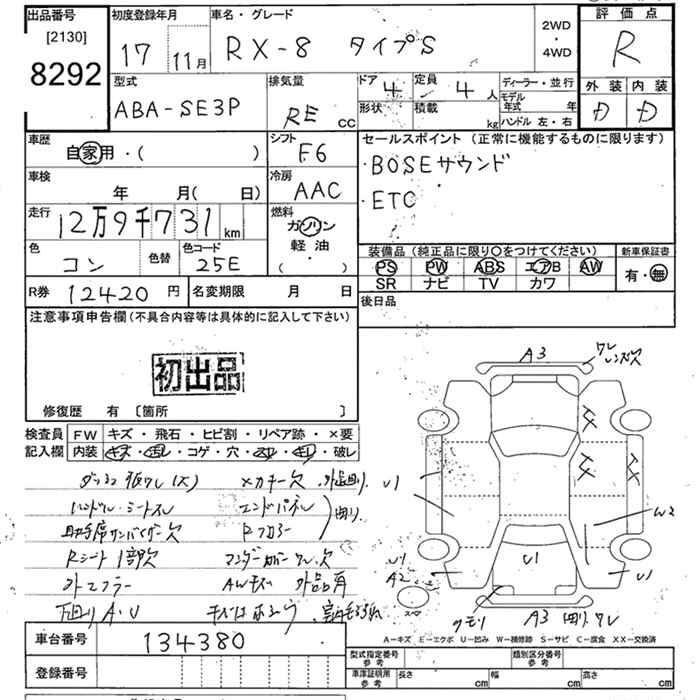 出品番号
[2130]
8292
初度登録年月
17 11月
車名・グレード
RX-8 タイプS
2WD
・
4WD
評価点
R
型式
ABA-SE3P
排気量
RE cc
ドア 4
形状
定員 4人
積載 kg
ディーラー・並行
モデル年式 年
ハンドル 左・右
外装 内装
D D
車歴
自家用・( )
シフト
F6
セールスポイント (正常に機能するものに限ります)
・BOSEサウンド
・ETC
車検
年 月( 日)
冷房
AAC
走行
12万9千731km
燃料
ガソリン
軽油
( ・ )
色
コン
色替
色コード
25E
装備品(純正品に限り〇をつけてください)
PS PW ABS エアB AW
SR ナビ TV カワ
新車保証書
有・無
R券 12420円
名変期限 月 日
後日品
注意事項申告欄(不具合内容等は具体的に記入して下さい)
初出品
修復歴 有 [箇所 ]
検査員
記入欄
FW キズ・飛石・ヒビ割・リペア跡・×要
内装 キズ・汚レ・コゲ・穴・・破レ
ハンドル・シートスレ エンドパネル
助手席サンバイザー欠 Rフロアー
Rシート1部欠
外マフラー AWキズ
下回りA・U
A3
ワレ
レンズ欠
U1
W2
U1
A2
U1
U1
クモリ
A3
スペア
A-キズ E-エクボ U-凹み W-補修跡 S-サビ C-腐食 XX-交換済
車台番号 134380
登録番号
型式指定番号
参考
類別区分番号
参考
車庫証明用
参考
長さ cm 幅 cm 高さ cm